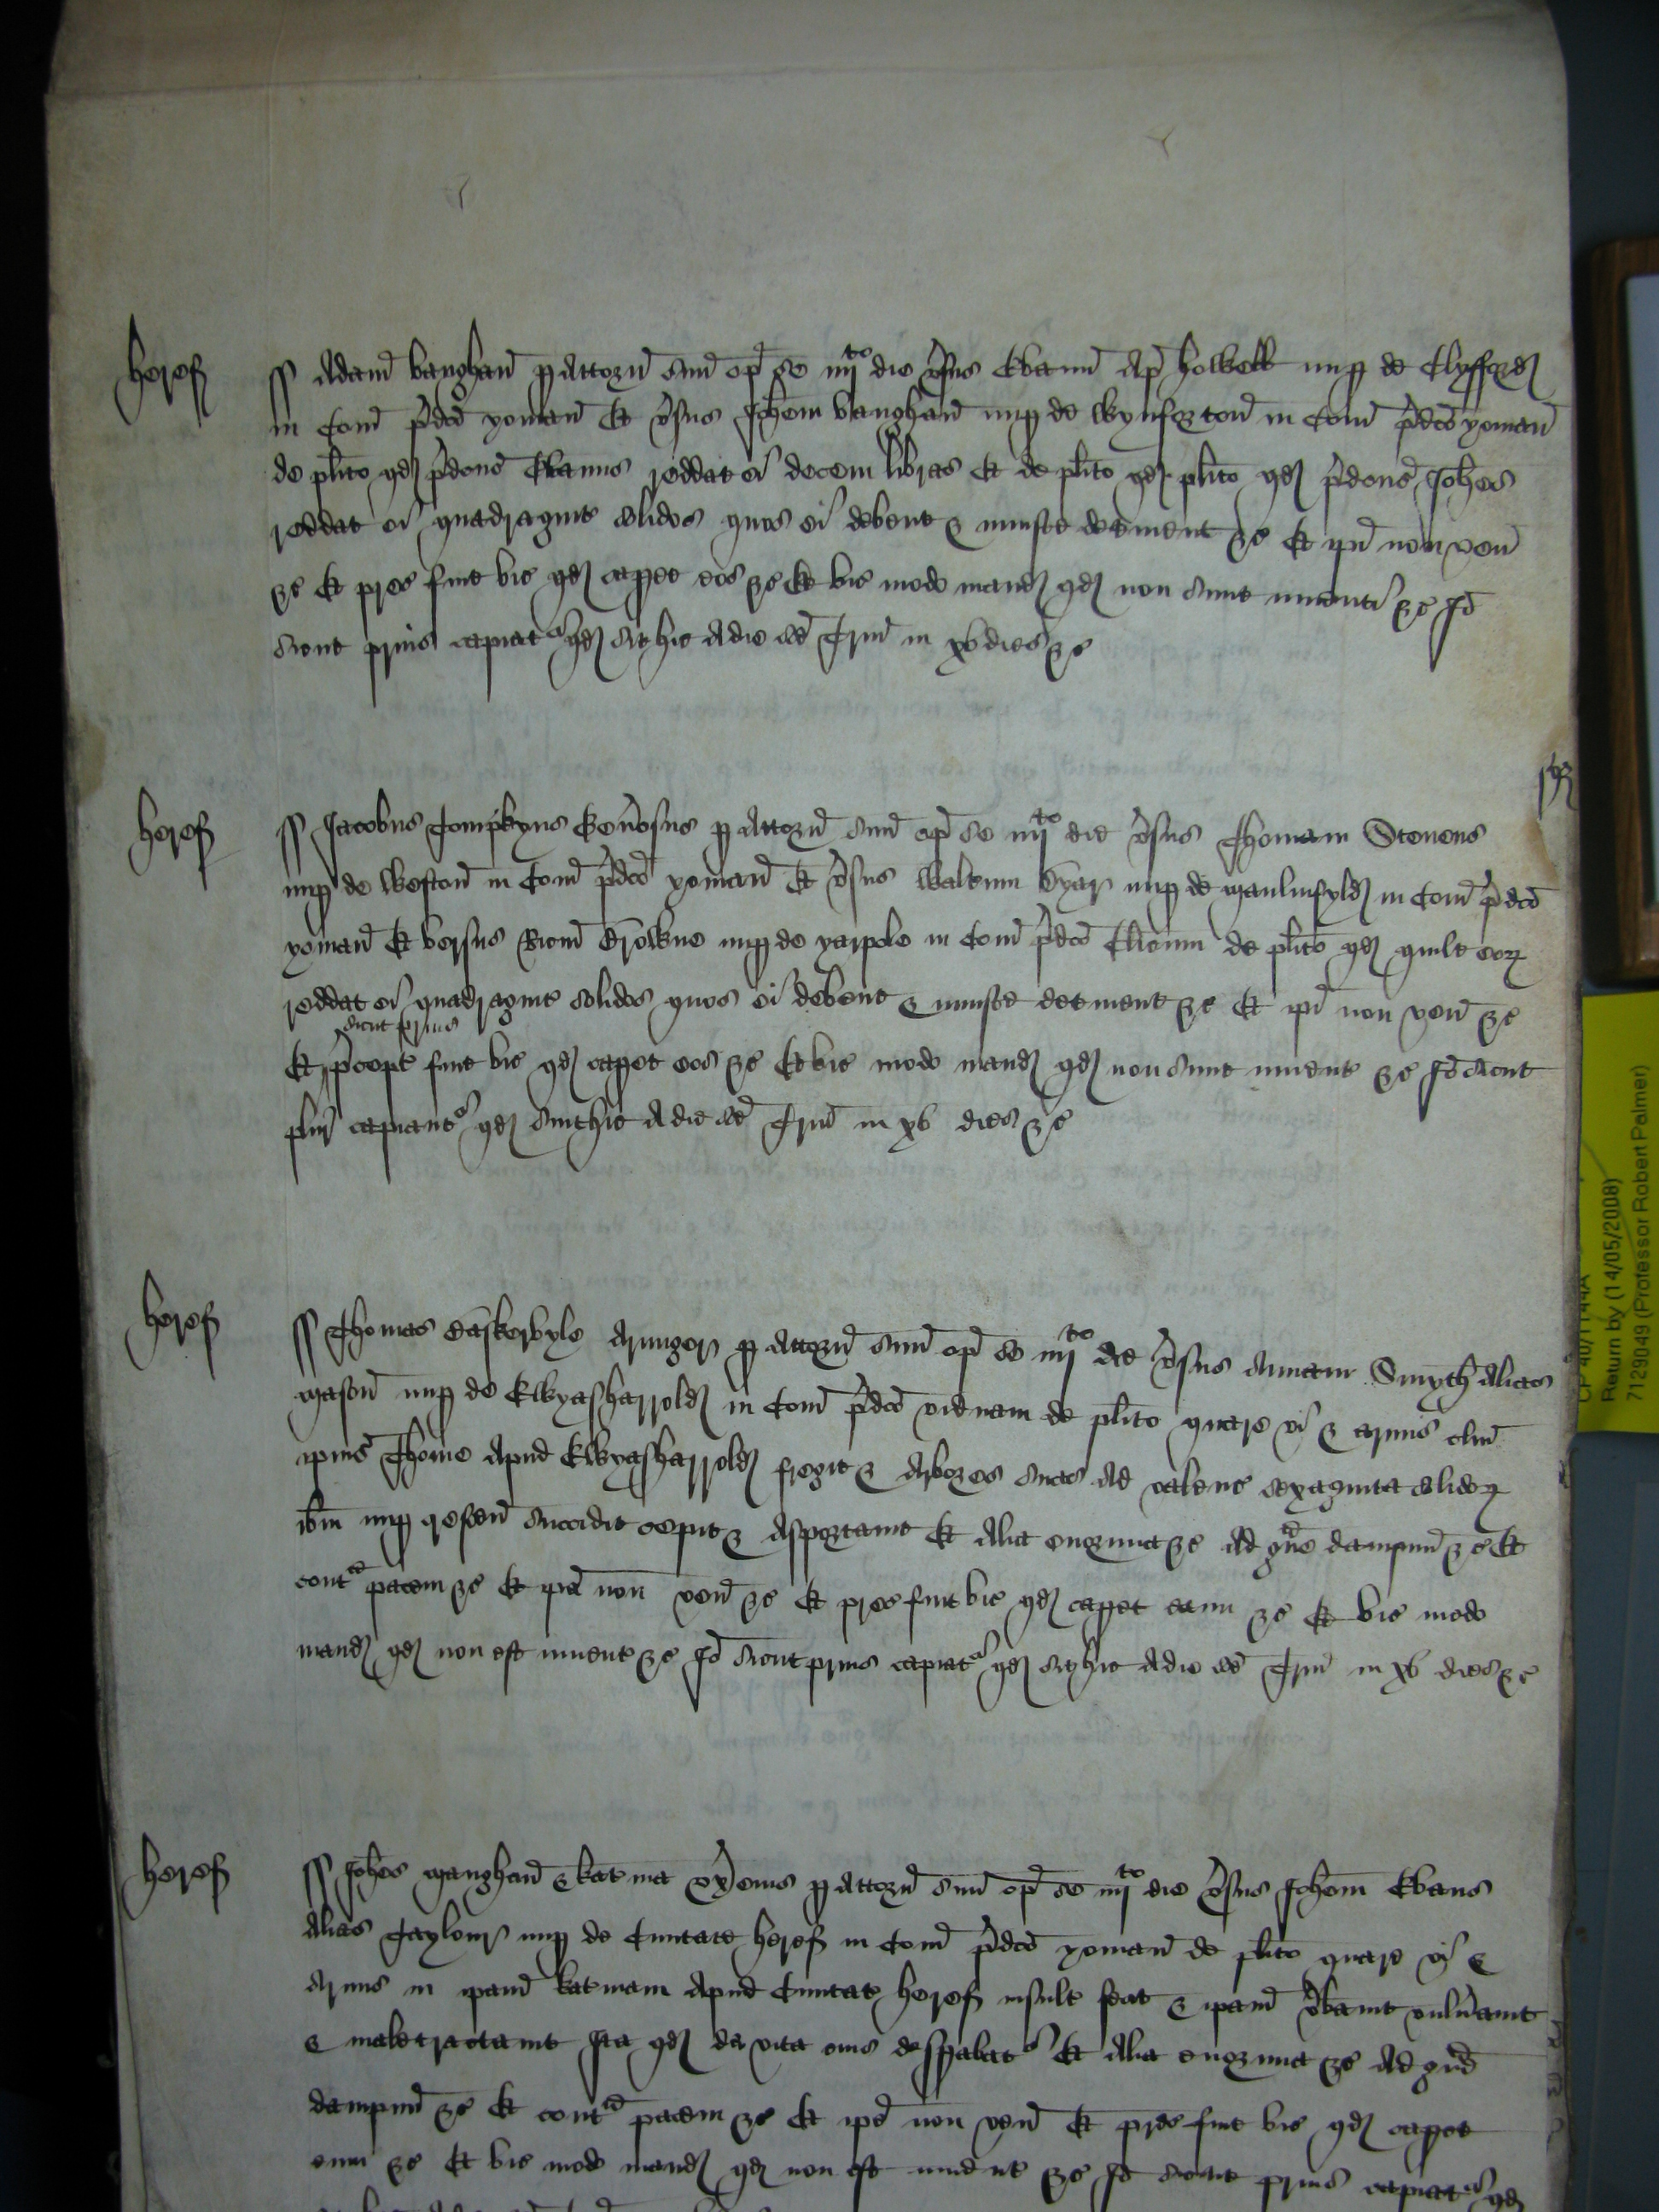 Heref
ss Adam Vaughan p Attorn suu op se iiijto die vsus Evanu Ap Howell nup de Clyfford
in Com pdco yoman Et vsus Johem Vaughan nup de Wynforton in Com pdco yoman
de plito qd pdcus Evanus reddat ei decem libras Et de plito qd plito qd pdcus Johes
reddat ei quadragint solidos quos ei debent & iniuste detinent &c Et ipi non ven
&c Et prec fuit vic qd capet eos &c Et vic modo mand qd non sunt inventi &c Io
sicut prius capiat qd sit hic A die sce Trin in xv dies &c
Heref
ss Jacobus Tompkyns Genosus p Attorn suu op se iiijto die vsus Thomam Stevens
nup de Weston in Com pdco yoman Et vsus Waltum Dyar nup de Maulinfyld in Com pdco
yoman Et versus Ricm Browne nup de yarpole in Com pdco Clicum de plito qd quilt eor
reddat ei quadragint solidos quos ei debent & iniuste detinent &c Et ipi non ven &c
sicut prius
Et pcept fuit vic qd capet eos &c Et vic modo mand qd non sunt invent &c Io sicut
plur capiant qd sint hic A die sce Trin in xv dies &c
Heref
ss Thomas Baskervyle Armiger p Attorn suu op se iiijto die vsus Annam Smyth Alias
Mason nup de Ewyasharrold in Com pdco viduam de plito quare vi & armis clm
ipius Thome Apud Ewyasharrold fregit & Arbores suas Ad valenc sexaginta solidor
ibm nup crescen succidit cepit & Asportavit Et Alia enormia &c Ad gve dampnu &c Et
contra pacem &c Et ipa non ven &c Et prec fuit vic qd capet eam &c Et vic modo
mand qd non est invent &c Io sicut prius capiat qd sit hic A die sce Trin in xv dies &c
Heref
ss Johes Maughan & Katina ux eius p Attorn suu op se iiijto die vsus Johem Evans
Alias Taylour nup de Civitate Heref in Com pdco yoman de plito quare vi &
Armis in ipam Katinam Apud Civitat Heref insult fecit & ipam vbavit vulnavit
& maletractavit Ita qd de vita eius despabat Et Alia enormia &c Ad gve
dampnu &c Et contra pacem &c Et ipe non ven Et prec fuit vic qd capet
eum &c Et vic modo mand qd non est invent &c Io sicut prius capiat qd
Return by (14/05/2008)
7129049 (Professor Robert Palmer)